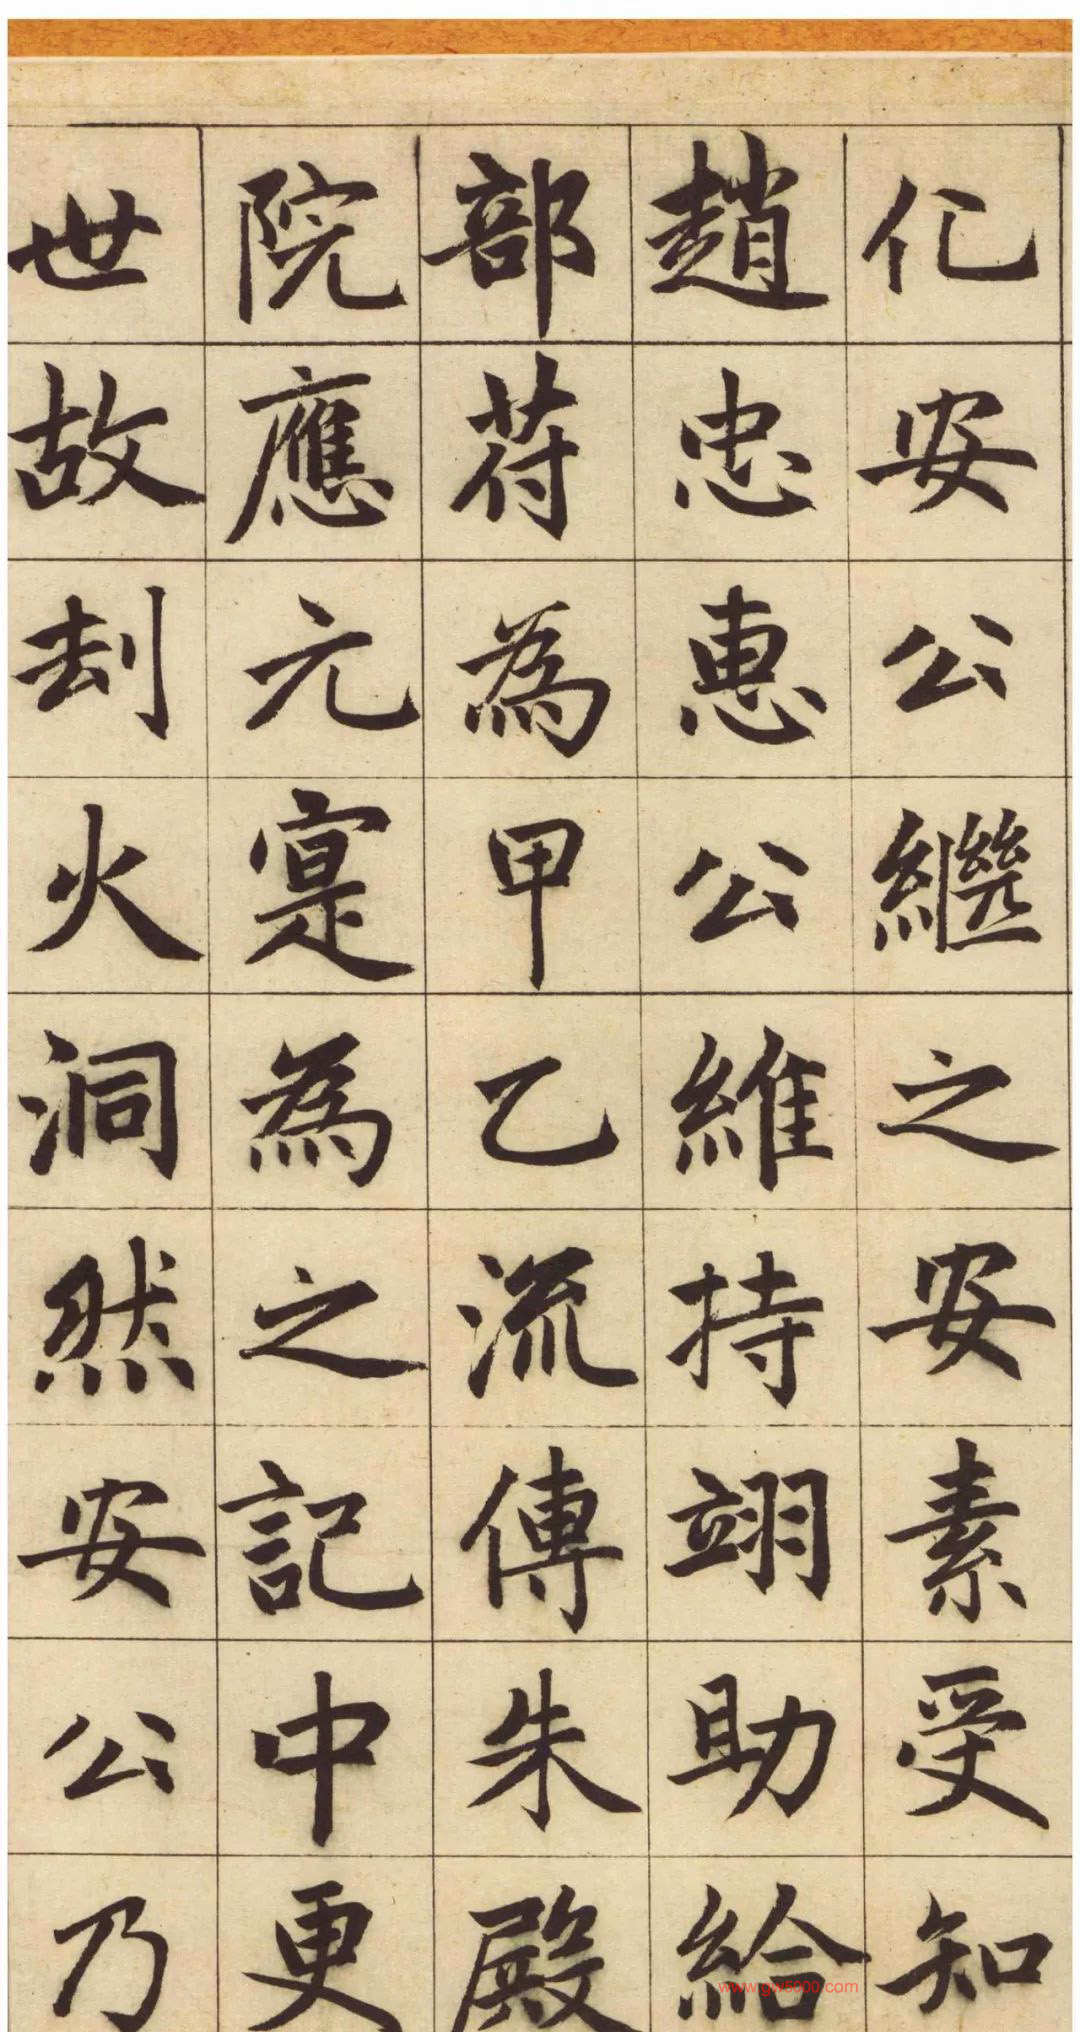 化安公繼之安素受知
趙忠惠公維持翊助給
部苻為甲乙流傳朱殿
院應元寔為之記中更
世故刦火洞然安公乃
www.gw5000.com